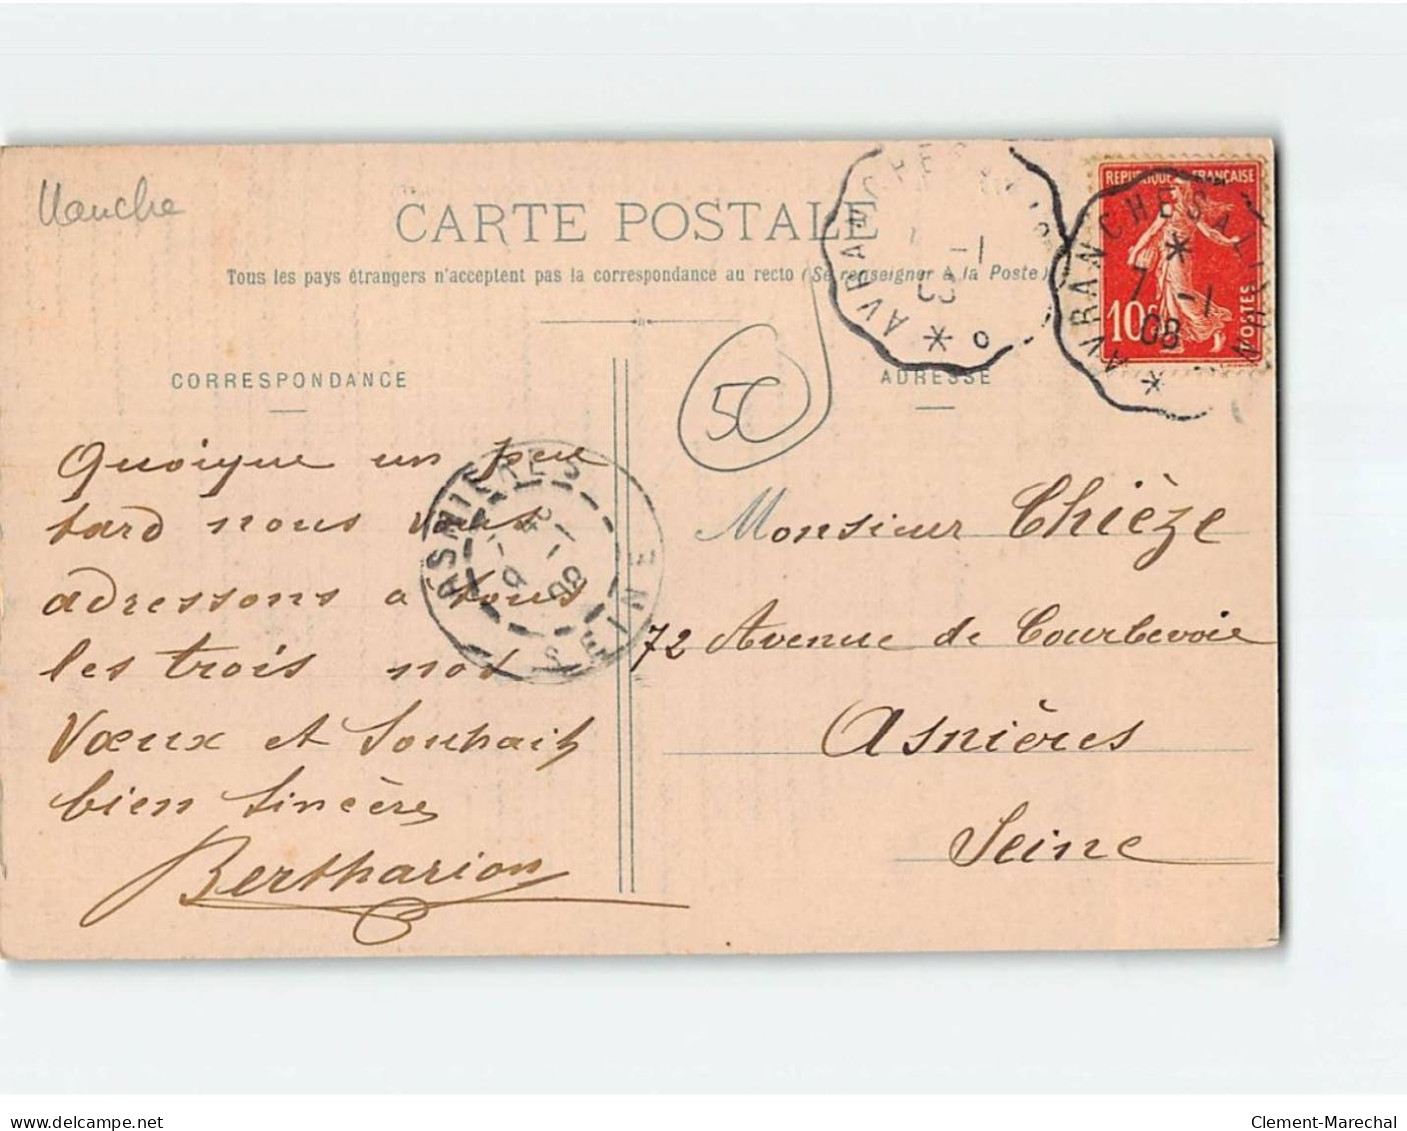 Manche
CARTE POSTALE
Tous les pays étrangers n'acceptent pas la correspondance au recto (Se renseigner à la Poste)
CORRESPONDANCE
ADRESSE
REPUBLIQUE FRANÇAISE
10c
POSTES
AVRANCHES A
7 -1
08
AVRANCHES
50
ASNIERES
SEINE
Quoique un peu
tard nous vous
adressons a tous
les trois nos
Vœux et Souhaits
bien Sincères
Bertharion
Monsieur Chièze
72 Avenue de Courbevoie
Asnières
Seine
delcampe.net
Clement-Marechal